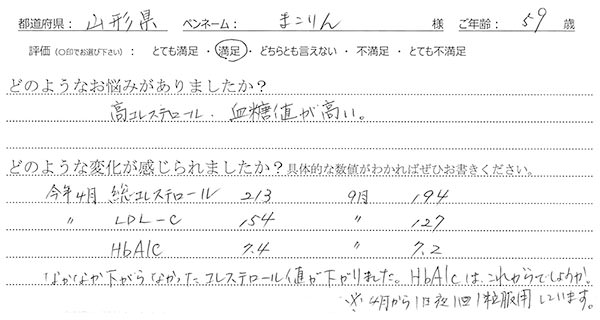 都道府県： 山形県 ペンネーム： まこりん 様 ご年齢： 59 歳
評価（○印でお選び下さい）： とても満足 ・ 満足 ・ どちらとも言えない ・ 不満足 ・ とても不満足
どのようなお悩みがありましたか？
高コレステロール、血糖値が高い。
どのような変化が感じられましたか？具体的な数値がわかればぜひお書きください。
今年4月 総コレステロール 213 9月 194
〃 LDL-C 154 〃 127
HbA1c 7.4 〃 7.2
なかなか下がらなかったコレステロール値が下がりました。HbA1cは、これからでしょうか。
※4月から1日夜1回1粒服用しています。